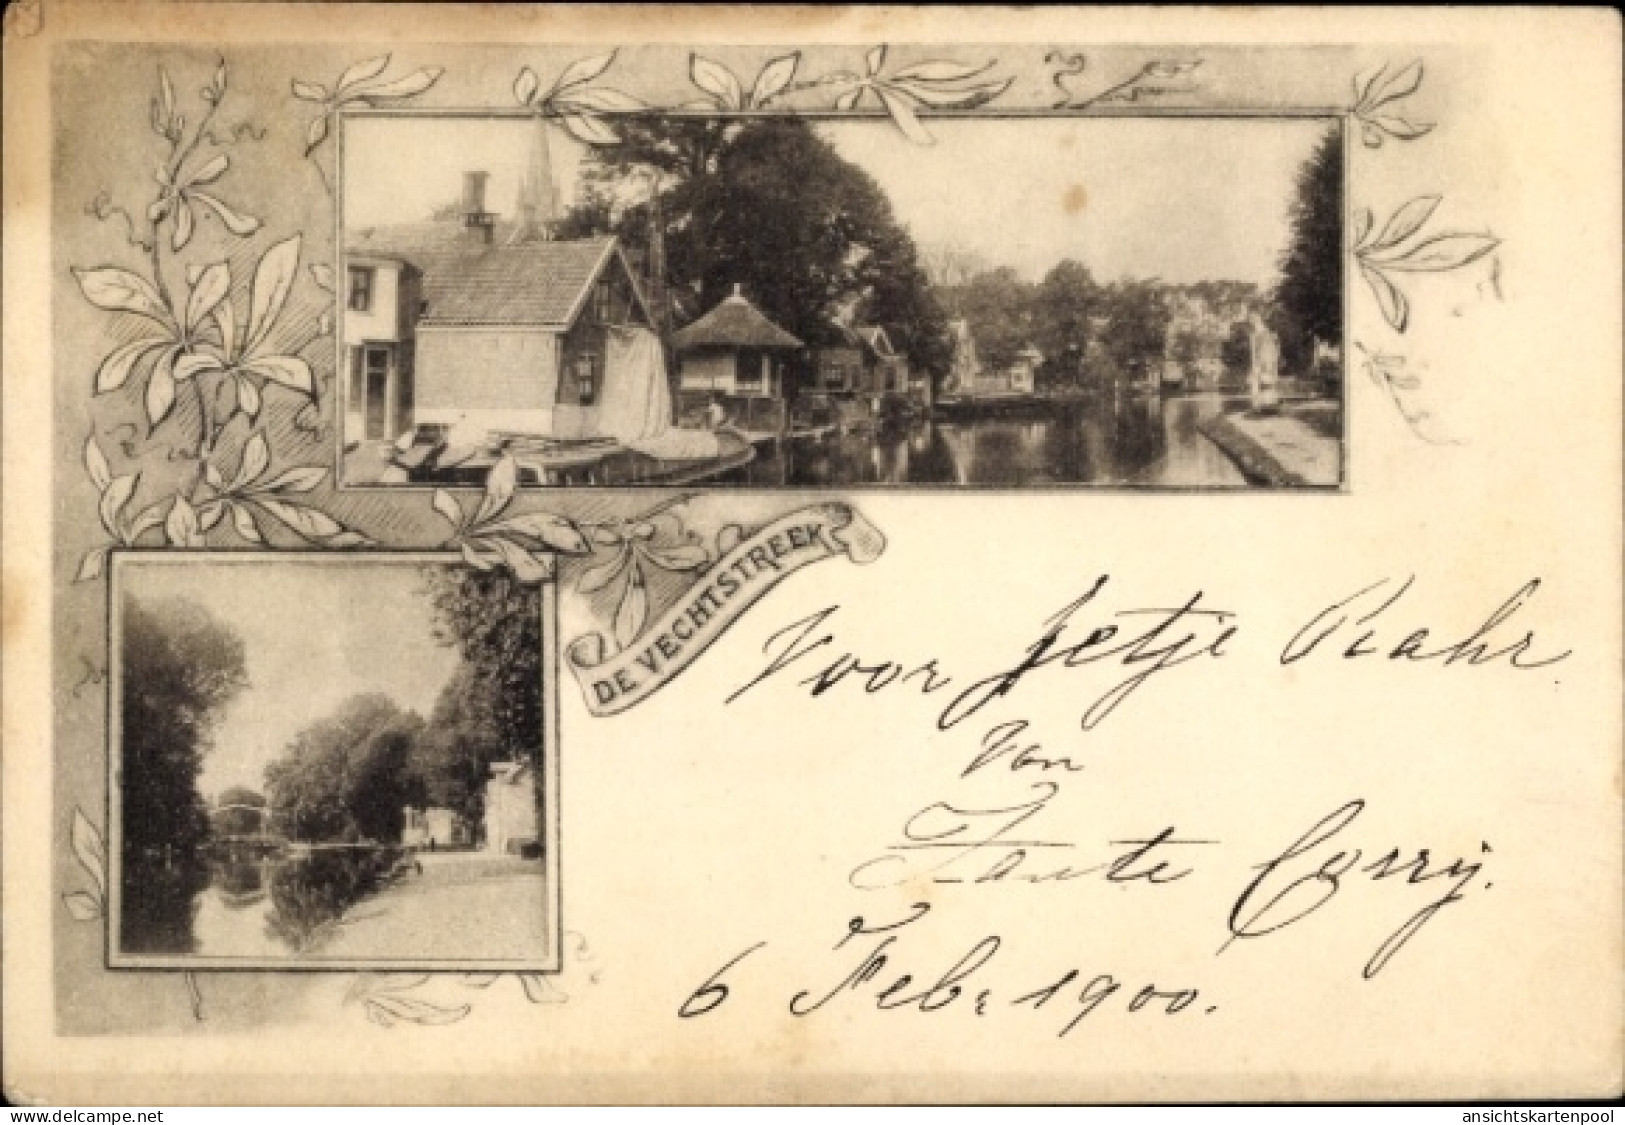 DE VECHTSTREEK
Voor Jetje Rahr.
Van
Tante Corry.
6 Feb. 1900.
delcampe.net
ansichtskartenpool